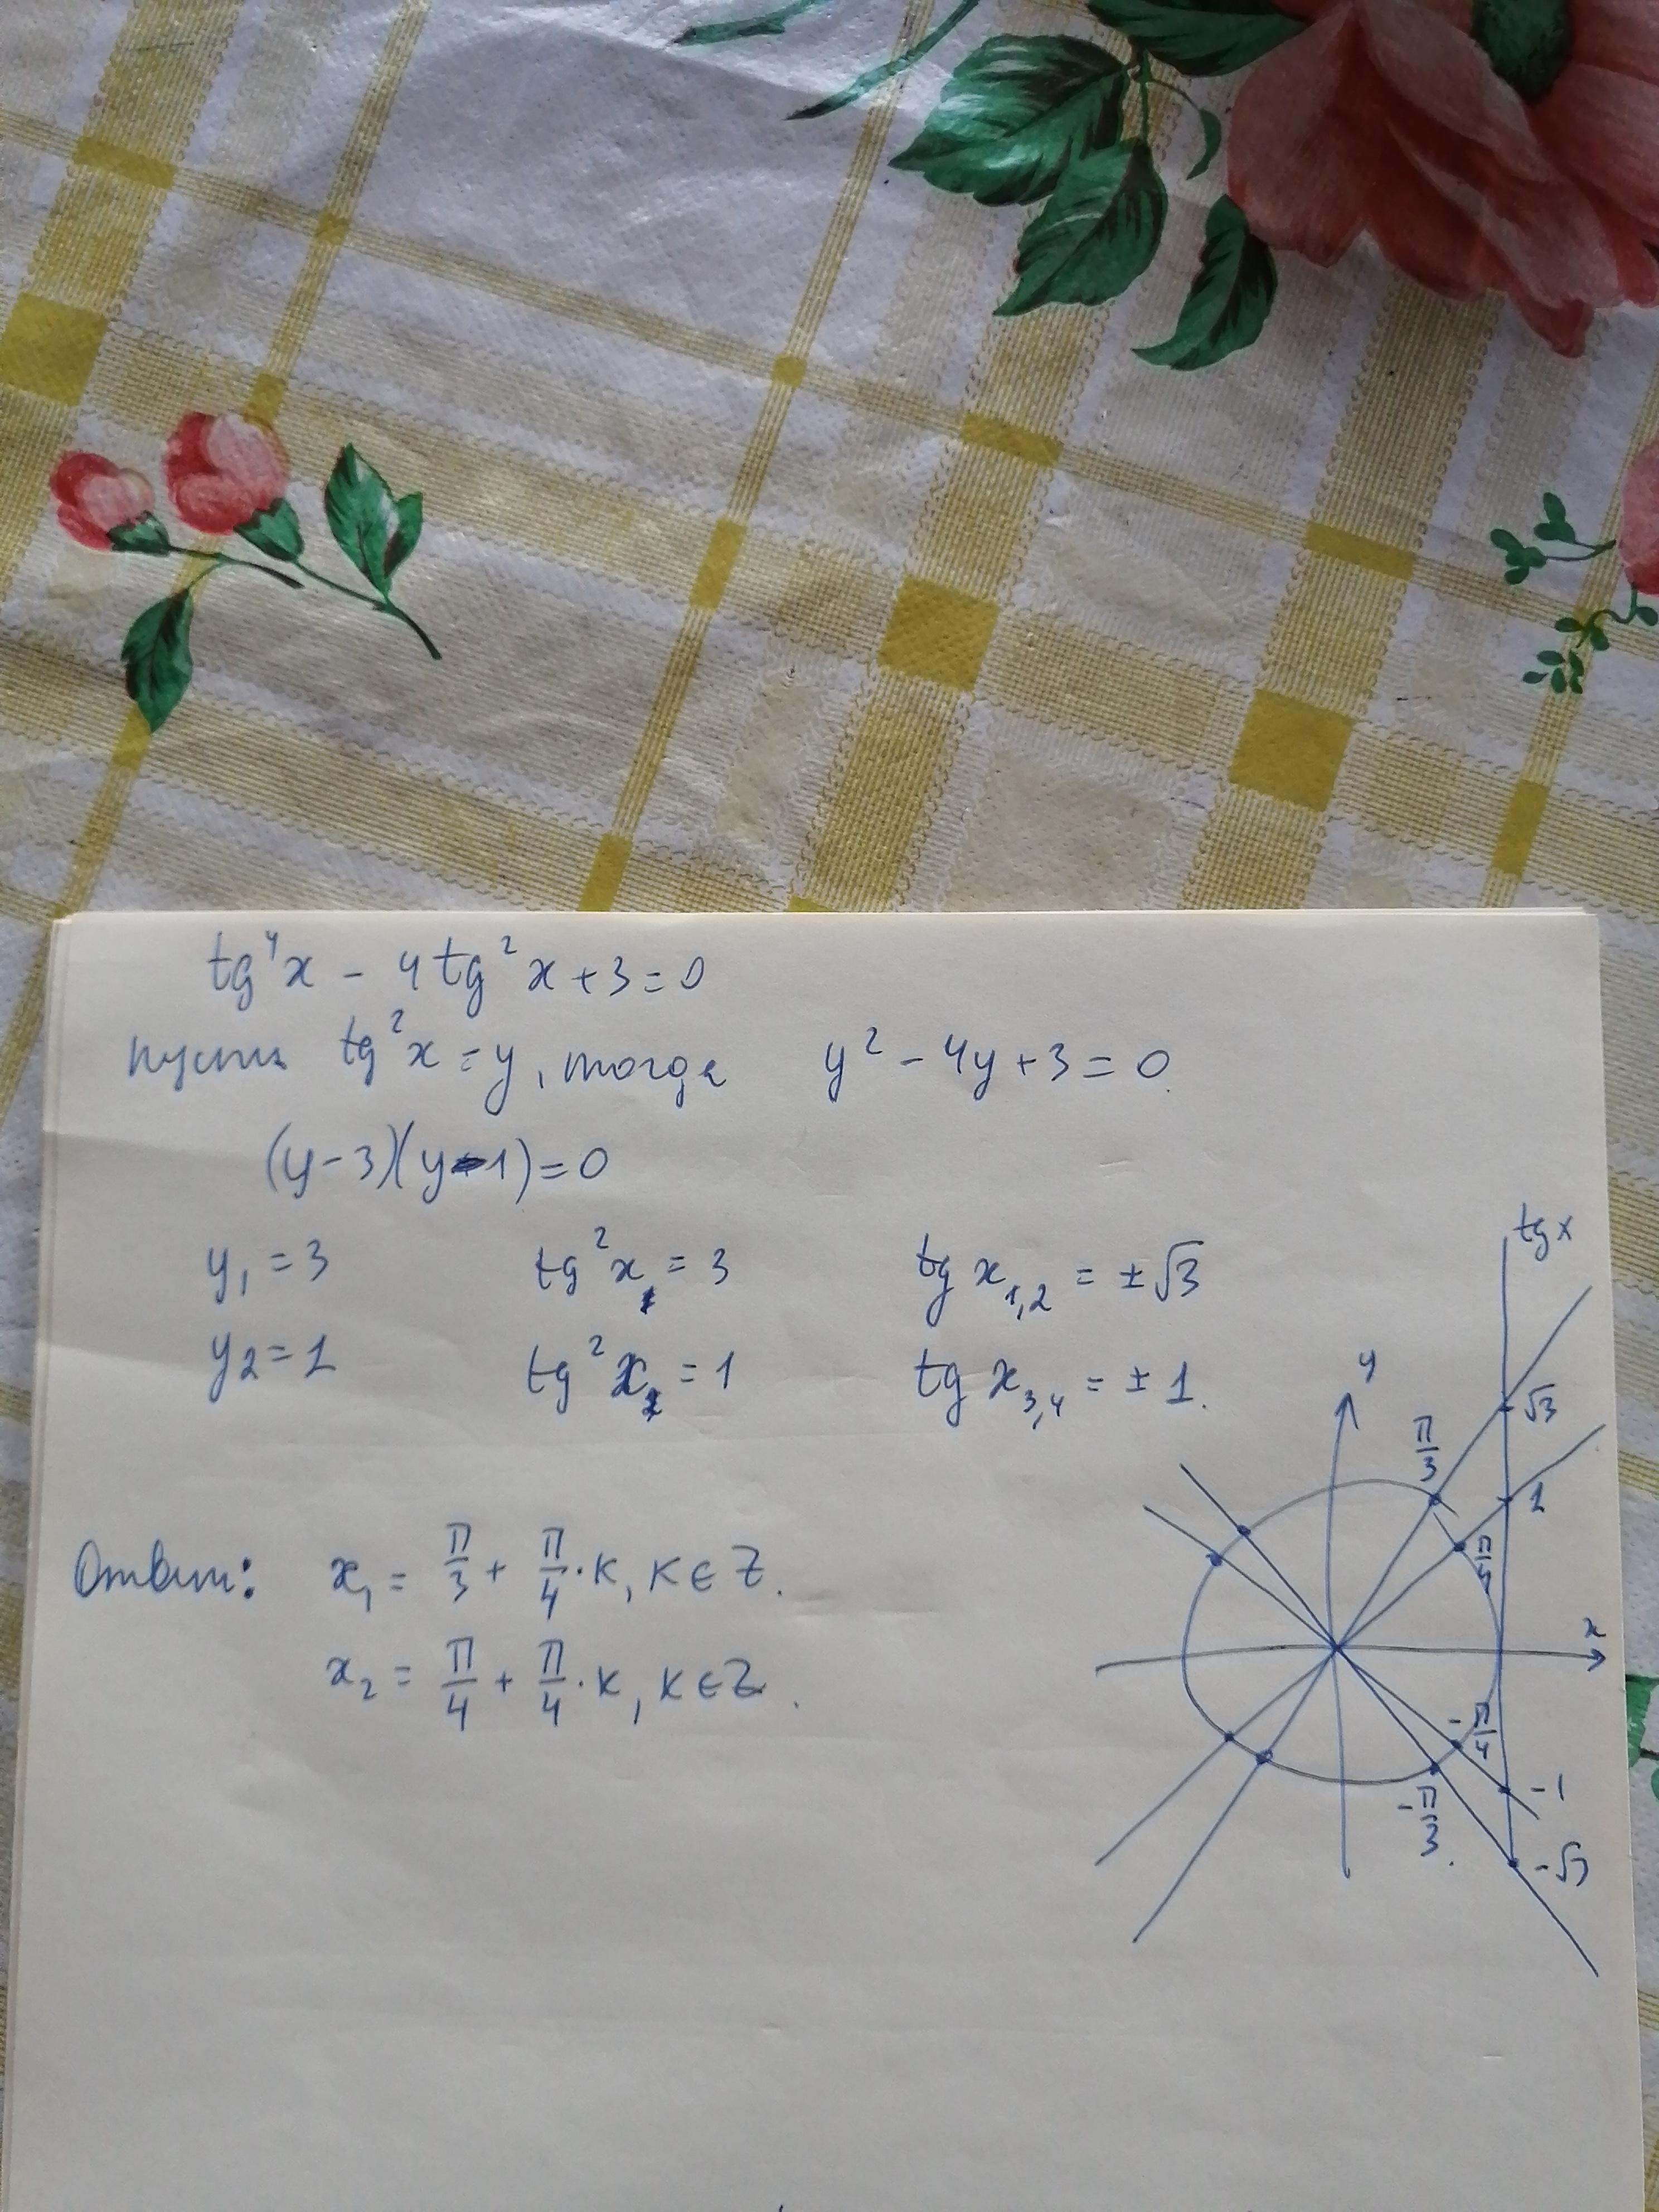 tg⁴x - 4tg²x + 3 = 0
пусть tg²x = y, тогда y² - 4y + 3 = 0.
(y - 3)(y - 1) = 0
y₁ = 3 tg²x₁ = 3 tg x₁,₂ = ±√3
y₂ = 1 tg²x₂ = 1 tg x₃,₄ = ±1.
Ответ: x₁ = π/3 + π/4 · k, k ∈ Z.
x₂ = π/4 + π/4 · k, k ∈ Z.
tg x
y
√3
π/3
1
π/4
x
-π/4
-1
-π/3.
-√3